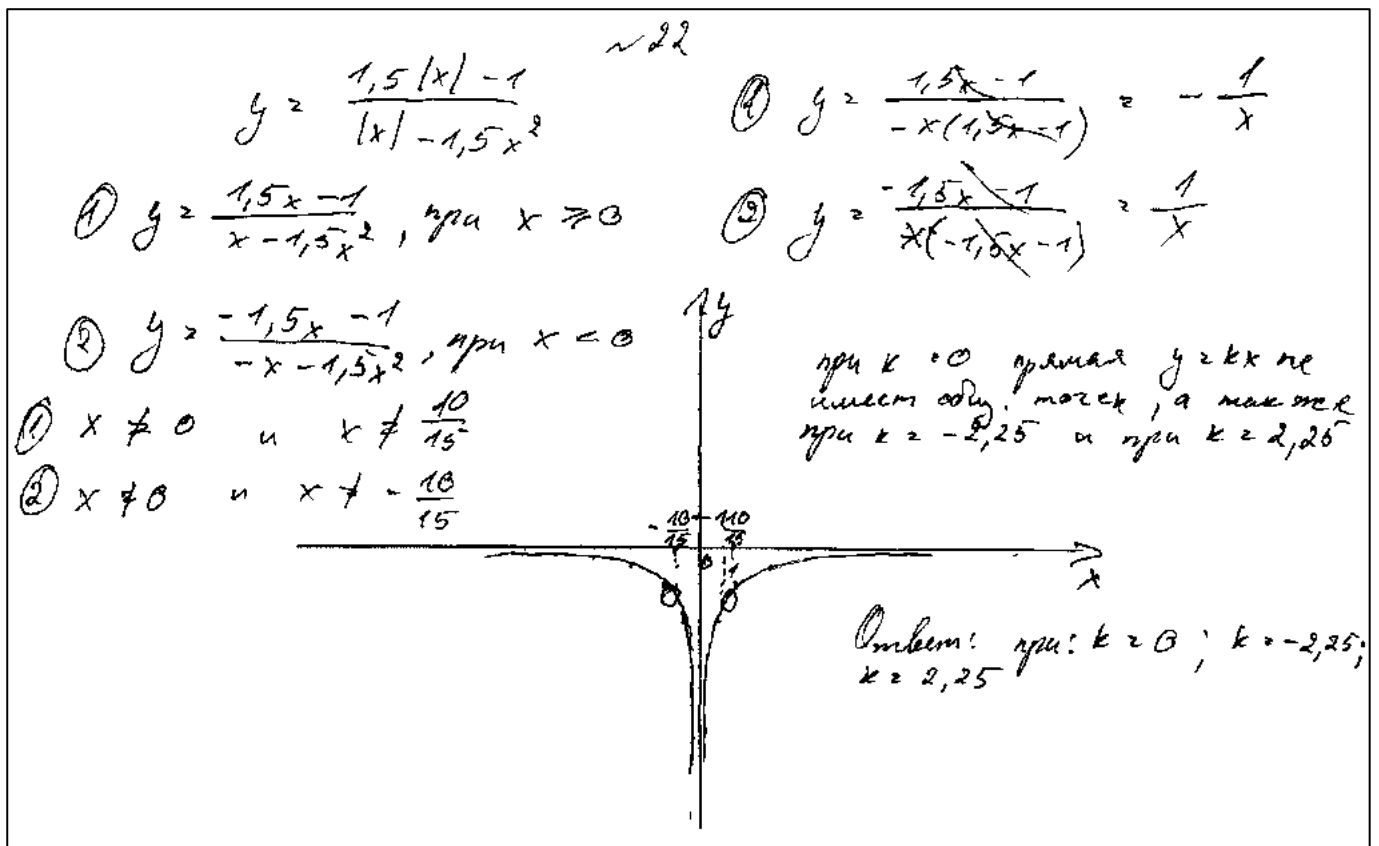 ~22
y = \frac{1,5|x| - 1}{|x| - 1,5x^2}
① y = \frac{1,5x - 1}{x - 1,5x^2}, при x ≥ 0
② y = \frac{-1,5x - 1}{-x - 1,5x^2}, при x < 0
① x ≠ 0 и x ≠ \frac{10}{15}
② x ≠ 0 и x ≠ - \frac{10}{15}
① y = \frac{1,5x - 1}{-x(1,5x - 1)} = - \frac{1}{x}
② y = \frac{-1,5x - 1}{x(-1,5x - 1)} = \frac{1}{x}
y
при k = 0 прямая y = kx не
имеет общ. точек, а также
при k = -2,25 и при k = 2,25
- \frac{10}{15} -1 \frac{10}{15}
0
1
x
Ответ: при: k = 0; k = -2,25;
k = 2,25